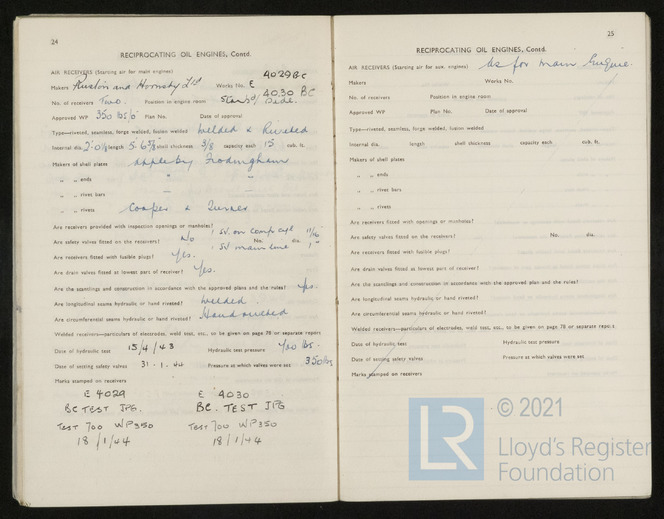 24
RECIPROCATING OIL ENGINES, Contd.
AIR RECEIVERS (Starting air for main engines)
4029 BC
Makers Ruston and Hornsby Ltd Works No. E
4030 BC
No. of receivers Two. Position in engine room Starb'd Side.
Approved WP 350 lbs/□" Plan No. Date of approval
Type—riveted, seamless, forge welded, fusion welded Welded & Riveted
Internal dia. 2'-0" length 5'-6 5/8" shell thickness 3/8 capacity each 15 cub. ft.
Makers of shell plates Appleby Frodingham
" " ends " "
" " rivet bars " "
" " rivets Cooper & Turner
Are receivers provided with inspection openings or manholes?
1 SV. on comp cyl 11/16
Are safety valves fitted on the receivers? No No. dia.
1 SV main line 1"
Are receivers fitted with fusible plugs? Yes.
Are drain valves fitted at lowest part of receiver? Yes.
Are the scantlings and construction in accordance with the approved plan and the rules? Yes.
Are longitudinal seams hydraulic or hand riveted? Welded.
Are circumferential seams hydraulic or hand riveted? Hand riveted
Welded receivers—particulars of electrodes, weld test, etc., to be given on page 78 or separate reports
Date of hydraulic test 15/4/43 Hydraulic test pressure 700 lbs.
Date of setting safety valves 31-1-44 Pressure at which valves were set 350 lbs
Marks stamped on receivers
E 4029 E 4030
BC TEST JPG. BC. TEST JPG
TEST 700 WP350 TEST 700 WP350
18/1/44 18/1/44
25
RECIPROCATING OIL ENGINES, Contd.
AIR RECEIVERS (Starting air for aux. engines) As for main Engine.
Makers Works No.
No. of receivers Position in engine room
Approved WP Plan No. Date of approval
Type—riveted, seamless, forge welded, fusion welded
Internal dia. length shell thickness capacity each cub. ft.
Makers of shell plates
" " ends
" " rivet bars
" " rivets
Are receivers fitted with openings or manholes?
Are safety valves fitted on the receivers? No. dia.
Are receivers fitted with fusible plugs?
Are drain valves fitted at lowest part of receiver?
Are the scantlings and construction in accordance with the approved plan and the rules?
Are longitudinal seams hydraulic or hand riveted?
Are circumferential seams hydraulic or hand riveted?
Welded receivers—particulars of electrodes, weld test, etc., to be given on page 78 or separate reports
Date of hydraulic test Hydraulic test pressure
Date of setting safety valves Pressure at which valves were set
Marks stamped on receivers
LR
© 2021
Lloyd's Register
Foundation